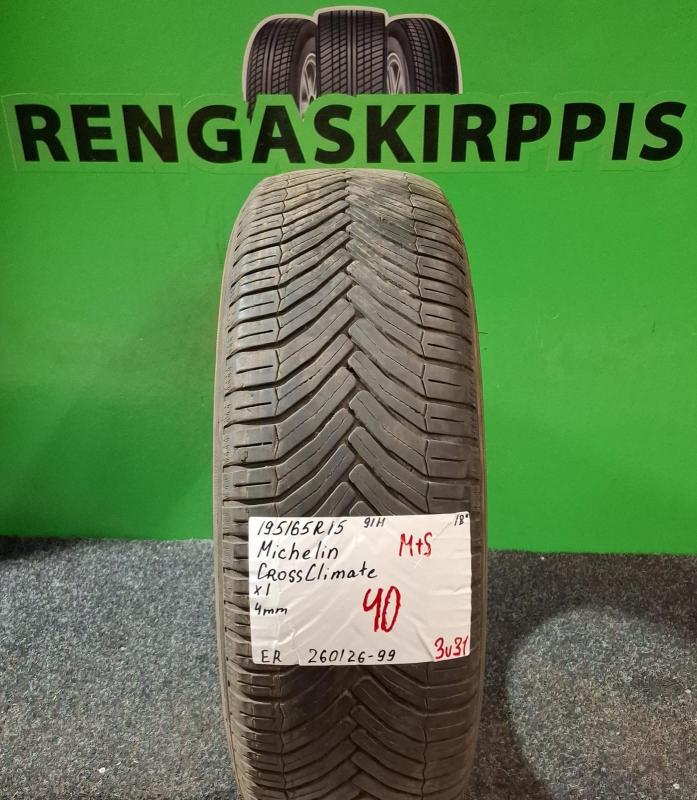 RENGASKIRPPIS
195/65R15 91H 18"
Michelin M+S
CROSSClimate
x1
4mm 40
ER 260126-99 3v31